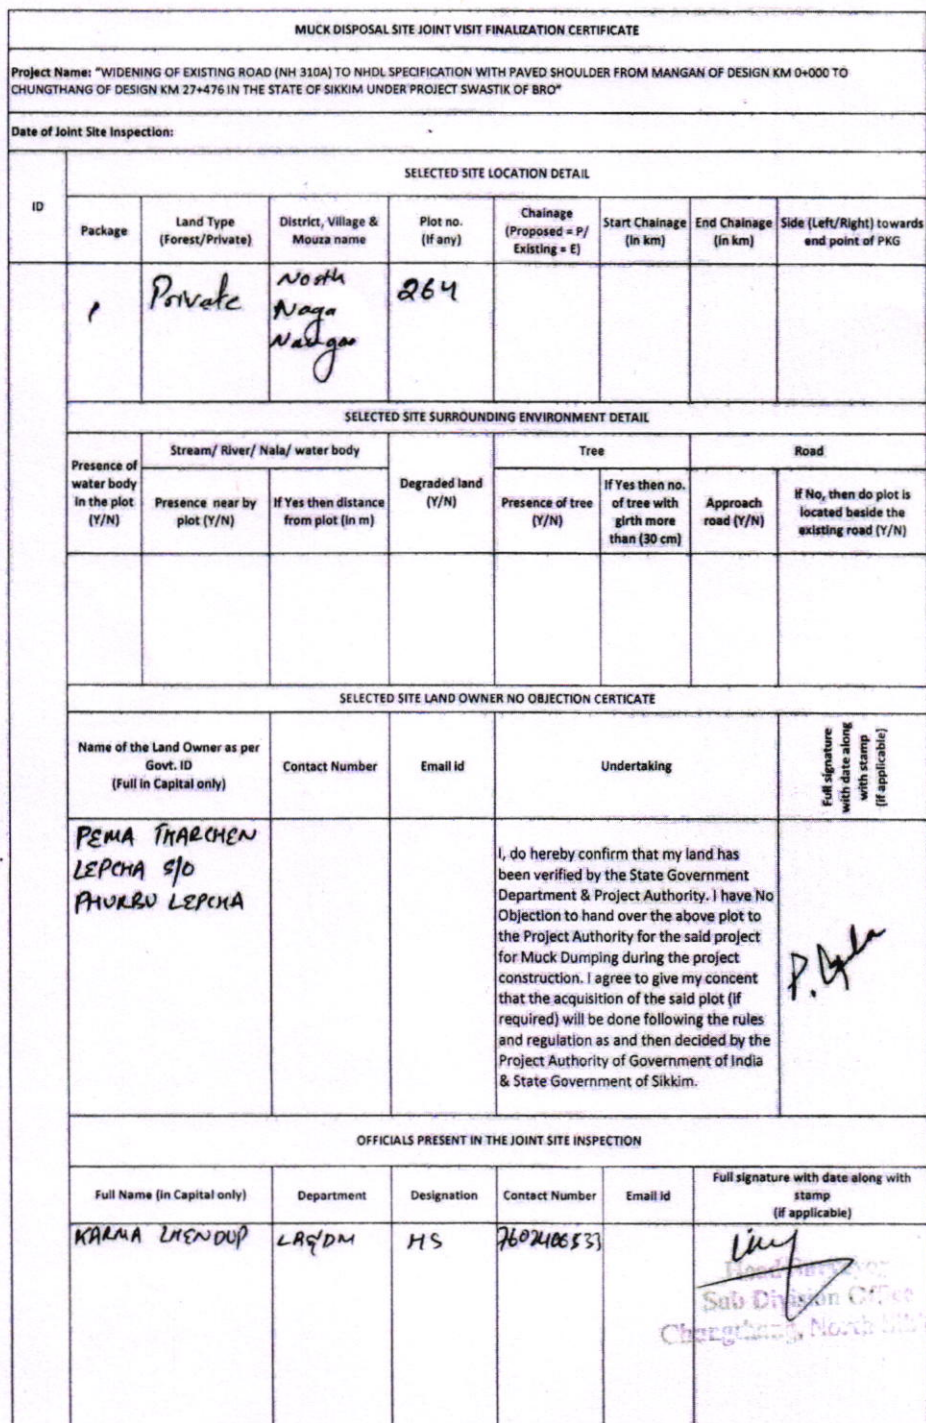 MUCK DISPOSAL SITE JOINT VISIT FINALIZATION CERTIFICATE
Project Name: "WIDENING OF EXISTING ROAD (NH 310A) TO NHDL SPECIFICATION WITH PAVED SHOULDER FROM MANGAN OF DESIGN KM 0+000 TO
CHUNGTHANG OF DESIGN KM 27+476 IN THE STATE OF SIKKIM UNDER PROJECT SWASTIK OF BRO"
Date of Joint Site Inspection:
SELECTED SITE LOCATION DETAIL
ID
Package
Land Type
(Forest/Private)
District, Village &
Mouza name
Plot no.
(If any)
Chainage
(Proposed = P/
Existing = E)
Start Chainage
(in km)
End Chainage
(in km)
Side (Left/Right) towards
end point of PKG
Private
North
Naga
264
SELECTED SITE SURROUNDING ENVIRONMENT DETAIL
Presence of
water body
in the plot
(Y/N)
Stream/ River/ Nala/ water body
Presence near by
plot (Y/N)
If Yes then distance
from plot (in m)
Degraded land
(Y/N)
Tree
Presence of tree
(Y/N)
If Yes then no.
of tree with
girth more
than (30 cm)
Road
Approach
road (Y/N)
If No, then do plot is
located beside the
existing road (Y/N)
SELECTED SITE LAND OWNER NO OBJECTION CERTICATE
Name of the Land Owner as per
Govt. ID
(Full in Capital only)
Contact Number
Email id
Undertaking
Full signature
with date along
with stamp
(if applicable)
PEMA THARCHEN
LEPCHA S/O
PHURBU LEPCHA
I, do hereby confirm that my land has
been verified by the State Government
Department & Project Authority. I have No
Objection to hand over the above plot to
the Project Authority for the said project
for Muck Dumping during the project
construction. I agree to give my concent
that the acquisition of the said plot (if
required) will be done following the rules
and regulation as and then decided by the
Project Authority of Government of India
& State Government of Sikkim.
OFFICIALS PRESENT IN THE JOINT SITE INSPECTION
Full Name (in Capital only)
Department
Designation
Contact Number
Email id
Full signature with date along with
stamp
(if applicable)
KARMA LHENDUP
LR&DM
HS
Head Surveyor
Sub Division Office
Chungthang, North